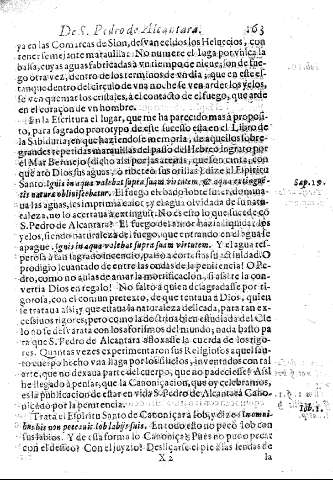 De S. Pedro de Alcantara. 163
ya en las Comarcas de Sion, desvaneci dos los Helvecios, con
tener semejante marauilla: No numere el
balsa, cuyas aguas fabricadas à vn tiempo de nieue; son de fue-
go otra vez, dentro de los terminos de vn dia; que en este es-
tanque dentro del circulo de vna noche se ven arder los yelos,
se ven quemar los cristales, à el contacto de el fuego, que arde
en el coraçon de vn hombre.
En la Escritura el lugar, que me ha parecido mas à propo-
sito, para sagrado prototypo de este sucesso esta en el Libro de
la Sabiduria; en que haziendose memoria, de aquellos sobre-
grandes repetidas marauillas del passo del Hebreo ingrato por
el Mar Bermejo (dicho assi por las arenas, que son cinta, con
que arò Dios sus aguas, ò ribetes sus orillas) dize el Espiritu
Santo. Ignis in aqua valebat supra suam virtutem, & aqua extinguē-
tis naturæ obliuiscebatur. Sap. 19.
El fuego
las aguas, les imprima calor; y el agua olvidada de su natu-
raleza, no lo acertaua à extinguir. No es esto lo que sucediò
S. Pedro de Alcantara? El fuego del amor hazia liquidar los
yelos, siendo naturaleza de fuego, que entrando en el agua se
apague. Ignis in aqua valebat supra suam virtutem. Y el agua res-
peros à tan sagrado incendio,
prodigio leuantado de entre las ondas de la penitencia! O Pe-
dro, como no aulas de amar la mortificacion, si assi te la con-
vertia Dios en regalo! No faltò à quien desagradasse por ri-
gorosa, con el comun pretexto, de que tentaua à Dios, quien
se trataua assi; y que estaua la naturaleza delicada, para tan ex-
cessiuos rigores; pero como la doctrina de en estudiada del Cie-
lo no se divierta con los aforismos del mundo; nada basto pa
ra que S. Pedro de Alcantara afloxasse la cuerda de los rigo-
res. Quintas vezes experimentaron sus Religiosos aquel san-
to cuerpo hecho vna llaga por los silicios, inventados con tal
arte, que no dexaua parte del cuerpo, que no padeciesse! Assi
he llegado à pensar, que la Canoniçacion, que oy celebramos,
es la publicacion de estar en vida S. Pedro de Alcantara Cano-
niçado por la penitencia.
Trata el Espiritu Santo de Canoniçar à Iob, y dize: In omni-
bus his non peccauit Iob labijs suis. En todo esto no pecò Iob con Iob. 1.
sus labios. Y de essa forma lo Canoniça? Pues no pudo pecar
con el desseo? Con el juyzio? Desliçarse el pie à las sendas de
X 2 la